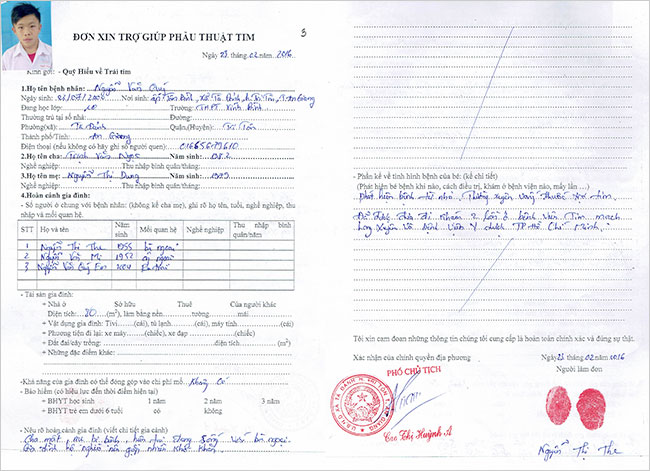 3
ĐƠN XIN TRỢ GIÚP PHẪU THUẬT TIM
Ngày 23 tháng 02 năm 2016
Kính gởi: - Quỹ Hiểu về Trái tim
1.Họ tên bệnh nhân: Nguyễn Văn Quý
Ngày sinh: Nơi sinh: ấp Tân Bình, xã Tà Đảnh, H. Tri Tôn, T. An Giang
Đang học lớp: 10 Trường: THPT
Thường trú tại số nhà: Đường:
Phường(xã): Tà Đảnh Quận,(Huyện): Tri Tôn
Thành phố/Tỉnh: An Giang
Điện thoại (nếu không có hãy ghi số người quen):
2.Họ tên cha: Trịnh Văn Ngọc Năm sinh:
Nghề nghiệp: Thu nhập bình quân/tháng:
3.Họ tên mẹ: Nguyễn Thị Dung Năm sinh: 1979
Nghề nghiệp: Thu nhập bình quân/tháng:
4.Hoàn cảnh gia đình:
- Số người ở chung với bệnh nhân: (không kể cha mẹ), ghi rõ họ tên, tuổi, nghề nghiệp, thu nhập và mối quan hệ.
STT Họ và tên Năm sinh Mối quan hệ Nghề nghiệp Thu nhập bình quân/năm
1 Nguyễn Thị The 1955 bà ngoại
2 Nguyễn Văn 1952 ngoại
3 Nguyễn Văn Quý Em 2004 Em
- Tài sản gia đình:
+ Nhà ở Sở hữu Thuê Của người khác
Diện tích: 80 (m²), làm bằng nền tường mái
+ Vật dụng gia đình: Tivi (cái), tủ lạnh (cái), máy tính (cái)
+ Phương tiện đi lại: xe máy (chiếc), xe đạp (chiếc)
+ Đất đai/cây trồng: diện tích (m²)
+ Những đặc điểm khác:
-Khả năng của gia đình có thể đóng góp vào chi phí mổ: Không có
- Bảo hiểm (có hiệu lực đến thời điểm hiện tại)
+ BHYT học sinh 1 năm 2 năm 3 năm
+ BHYT trẻ em dưới 6 tuổi có không
- Nêu rõ hoàn cảnh gia đình (viết chi tiết gia cảnh)
Cha mất, mẹ bị bệnh, hiện tại đang sống với bà ngoại
Gia đình hộ nghèo nên gặp nhiều khó khăn
- Phần kể về tình hình bệnh của bé: (kể chi tiết)
(Phát hiện bệnh khi nào, cách điều trị, khám ở bệnh viện nào, mấy lần ...)
Phát hiện bệnh từ nhỏ, Thường xuyên uống thuốc trợ tim
Đã được đưa đi khám 2 lần ở bệnh viện Tim mạch
Long Xuyên và Bệnh viện Y dược TP Hồ Chí Minh
Tôi xin cam đoan những thông tin chúng tôi cung cấp là hoàn toàn chính xác và đúng sự thật.
Xác nhận của chính quyền địa phương
Ngày 23 tháng 02 năm 2016
Người làm đơn
PHÓ CHỦ TỊCH
Cao Thị Huỳnh A
Nguyễn Thị The